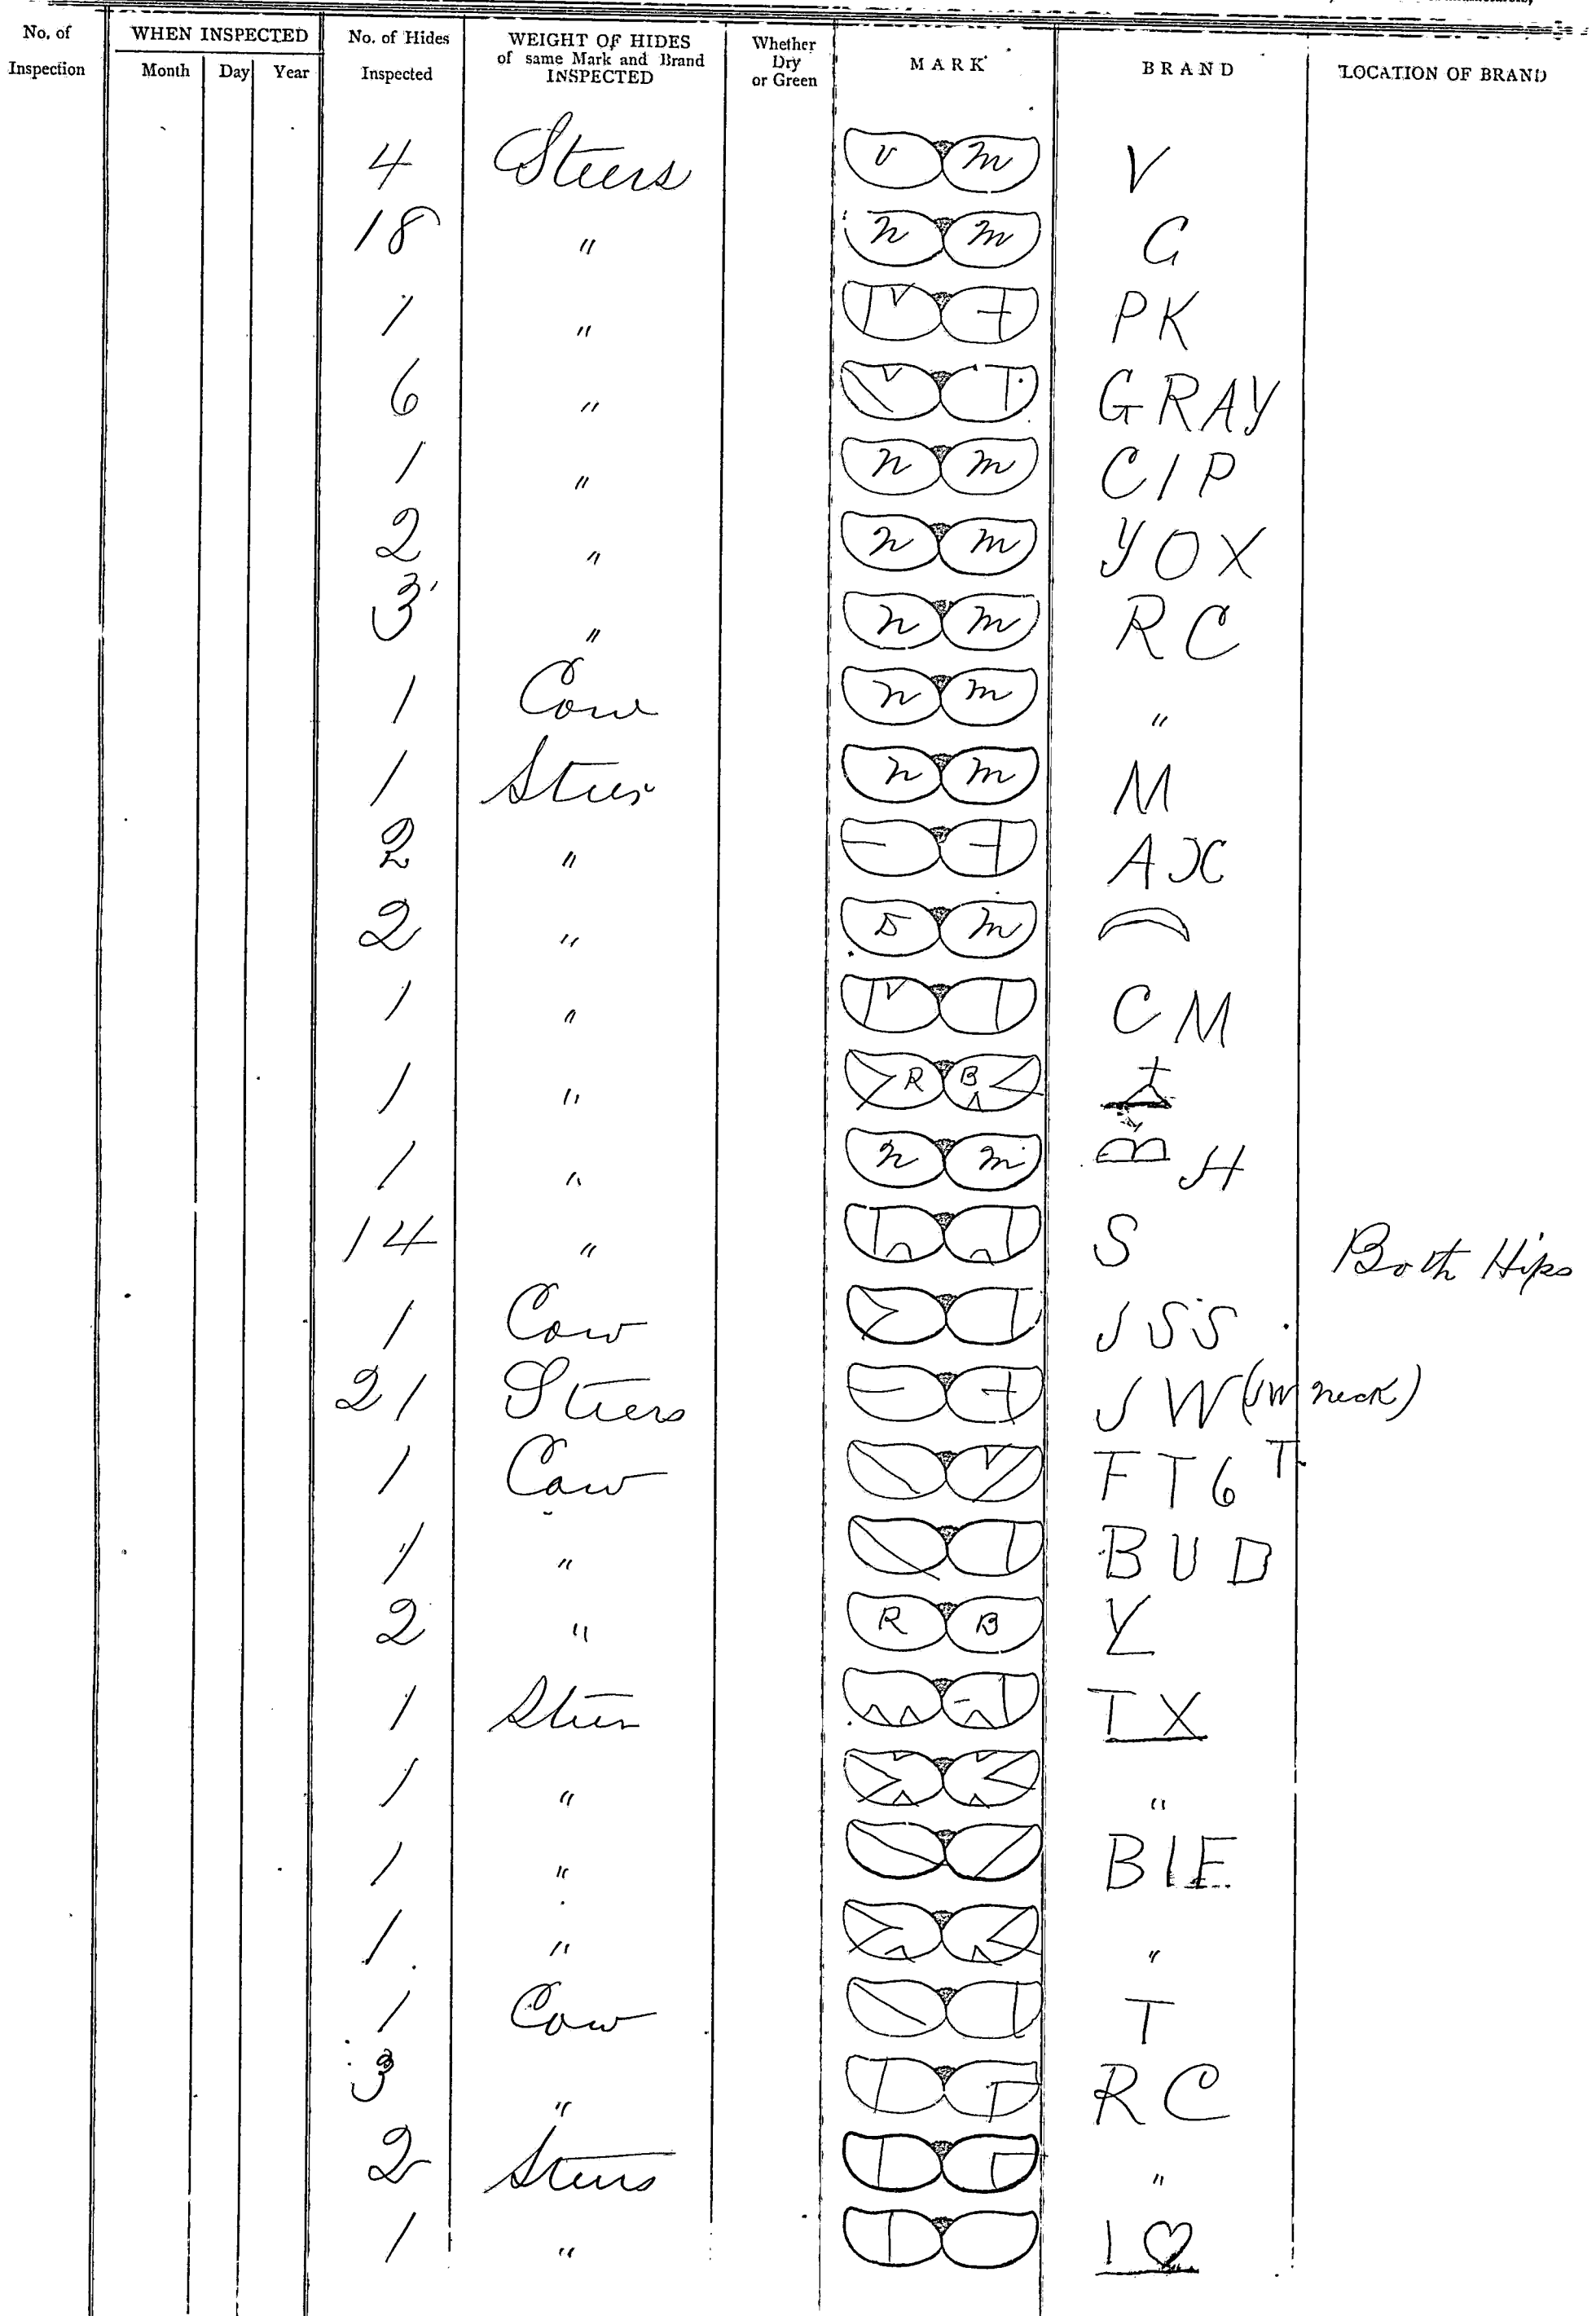 No. of Inspection WHEN INSPECTED Month Day Year No. of Hides Inspected WEIGHT OF HIDES of same Mark and Brand INSPECTED Whether Dry or Green MARK BRAND LOCATION OF BRAND
4 Steers v m V
18 " n m C
1 " PK
6 " GRAY
1 " n m CIP
2 " n m YOX
3 " n m RC
1 Cow n m "
1 Steer n m M
2 " AX
2 " m
1 " CM
1 " R B
1 " n m H
14 " S Both Hips
1 Cow JSS
21 Steers JW (JW neck)
1 Cow FT6 T
1 " BUD
2 " R B Y
1 Steer TX
1 " "
1 " BIE
1 " "
1 Cow T
3 " RC
2 Steers "
1 " I ♡